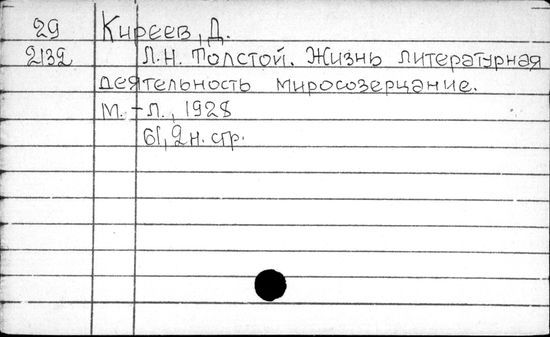 29 Киреев, Д.
2132 Л.Н. Толстой. Жизнь литературная
деятельность миросозерцание.
М.-Л., 1928
61, 2 н. стр.